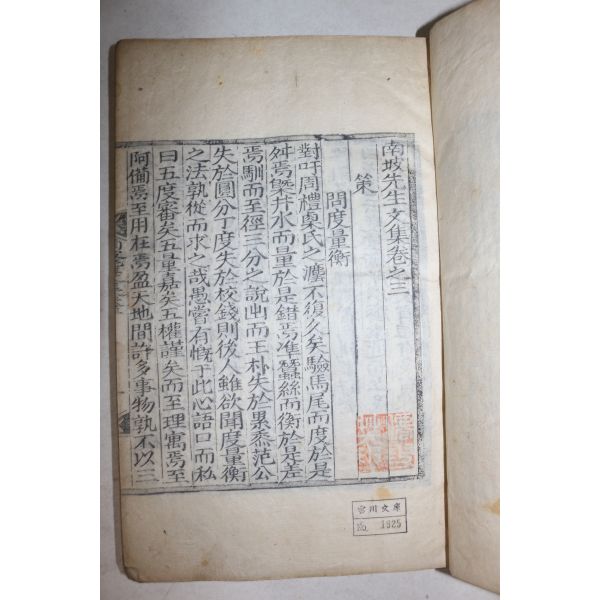 南坡先生文集卷之三
策
問度量衡
對吁周禮㮚氏之灋不復久矣驗馬尾而度於是
舛焉槩井水而量於是錯焉準蠶絲而衡於是差
焉馴而至徑三分之說出而王朴失於累黍范公
失於圓分丁度失於校錢則後人雖欲聞度量衡
之法孰從而求之哉愚嘗有慨于此心語口而私
曰五度審矣五量嘉矣五權謹矣而至理寓焉至
阿備焉至用在焉盈天地間許多事物孰不以三
宮川文庫
No. 1625